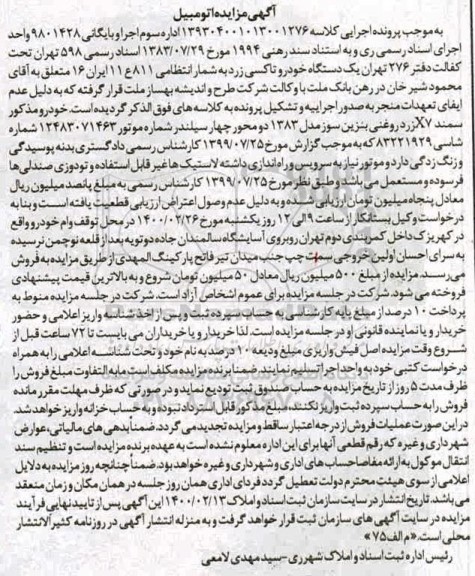 آگهی مزایده اتومبیل
به موجب پرونده اجرایی کلاسه ۱۳۹۳۰۴۰۰۱۰۱۳۰۰۱۲۷۶ اداره سوم اجرا و بایگانی ۹۸۰۱۴۲۸ واحد
اجرای اسناد رسمی ری و به استناد سند رهنی ۱۹۹۴ مورخ ۱۳۸۳/۰۷/۲۹ اسناد رسمی ۵۹۸ تهران تحت
کفالت دفتر ۲۷۶ تهران یک دستگاه خودرو تاکسی زرد به شمار انتظامی ۸۱۱ع۱۱ ایران ۱۶ متعلق به آقای
محمود شیر خان در رهن بانک ملت با وکالت شرکت طرح و اندیشه بهساز ملت قرار گرفته که به دلیل عدم
ایفای تعهدات منجر به صدور اجراییه و تشکیل پرونده به کلاسه های فوق الذکر گردیده است. خودرو مذکور
سمند X7 زرد روغنی بنزین سوز مدل ۱۳۸۳ دو محور چهار سیلندر شماره موتور ۱۲۴۸۳۰۷۱۴۶۳ شماره
شاسی ۸۳۲۲۱۹۲۹ که به موجب گزارش مورخ ۱۳۹۹/۰۷/۲۵ کارشناس رسمی دادگستری بدنه پوسیدگی
و زنگ زدگی دارد و موتور نیاز به سرویس و راه اندازی داشته لاستیک ها غیر قابل استفاده و تودوزی صندلی ها
فرسوده و مستعمل می باشد و طبق نظر مورخ ۱۳۹۹/۰۷/۲۵ کارشناس رسمی به مبلغ پانصد میلیون ریال
معادل پنجاه میلیون تومان ارزیابی شده و به دلیل عدم وصول اعتراض ارزیابی قطعیت یافته است و بنا به
درخواست وکیل بستانکار از ساعت ۹ الی ۱۲ روز یکشنبه مورخ ۱۴۰۰/۰۲/۲۶ در محل توقف وام خودرو واقع
در کهریزک داخل کمربندی دوم تهران روبروی آسایشگاه سالمندان جاده دو تویه بعد از قلعه نوچمن نرسیده
به سرای احسان اولین خروجی سمت چپ جنب میدان تیر فاتح پارکینگ المهدی از طریق مزایده به فروش
می رسد. مزایده از مبلغ ۵۰۰ میلیون ریال معادل ۵۰ میلیون تومان شروع و به بالاترین قیمت پیشنهادی
فروخته می شود. شرکت در جلسه مزایده برای عموم اشخاص آزاد است. شرکت در جلسه مزایده منوط به
پرداخت ۱۰ درصد از مبلغ پایه کارشناسی به حساب سپرده ثبت و پس از اخذ شناسه واریز اعلامی و حضور
خریدار یا نماینده قانونی او در جلسه مزایده است. لذا خریدار و یا خریداران می بایست تا ۷۲ ساعت قبل از
شروع وقت مزایده اصل فیش واریزی مبلغ ودیعه ۱۰ درصد به نام خود و تحت شناسه اعلامی را به همراه
درخواست کتبی خود به واحد اجرا تسلیم نمایند. ضمنا برنده مزایده مکلف است مابه التفاوت مبلغ فروش را
ظرف مدت ۵ روز از تاریخ مزایده به حساب صندوق ثبت تودیع نماید و در صورتی که ظرف مهلت مقرر مانده
فروش را به حساب سپرده ثبت واریز نکنند، مبلغ مذکور قابل استرداد نبوده و به حساب خزانه واریز خواهد شد.
در این صورت عملیات فروش از درجه اعتبار ساقط و مزایده تجدید می گردد. ضمنا بدهی های مالیاتی، عوارض
شهرداری و غیره که رقم قطعی آنها برای این اداره معلوم نشده است به عهده برنده مزایده است و تنظیم سند
انتقال موکول به ارائه مفاصا حساب های اداری و شهرداری و غیره خواهد بود. ضمنا چنانچه روز مزایده به دلایل
اعلامی از سوی هیئت محترم دولت تعطیل گردد فردای اداری همان روز جلسه در همان مکان و زمان منعقد
می باشد. تاریخ انتشار در سایت سازمان ثبت اسناد و املاک ۱۴۰۰/۰۲/۱۳ این آگهی پس از تایید نهایی فرآیند
مزایده در سایت آگهی های سازمان ثبت قرار خواهد گرفت و به منزله انتشار آگهی در روزنامه کثیر الانتشار
محلی است. «م الف ۷۵»
رئیس اداره ثبت اسناد و املاک شهرری - سید مهدی لامعی